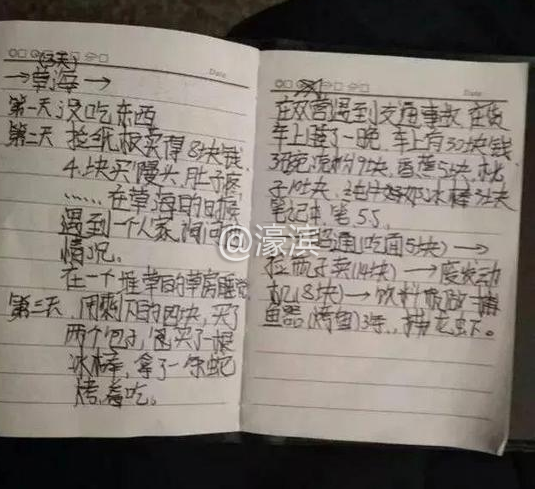 Date
(3天)
→草海→
第一天 没吃东西
第二天 捡纸板卖得8块钱
4块买馒头,肚子疼
……在草海的时候
遇到一个人家询问
情况。
在一个堆草的草房睡觉
第三天 用剩下的四块,买了
两个包子,买了一根
冰棒,拿了一条蛇
烤着吃。
Date
在双营遇到交通事故 在货
车上睡了一晚,车上有30块钱
9块,香蕉5块,桃
子 块 冰棒3块
笔记本 笔 5.5
昭通(吃面5块)→
捡瓶子卖(14块)→废发动
机(8块)→饮料瓶做捕
鱼器(烤鱼)3
@濠滨